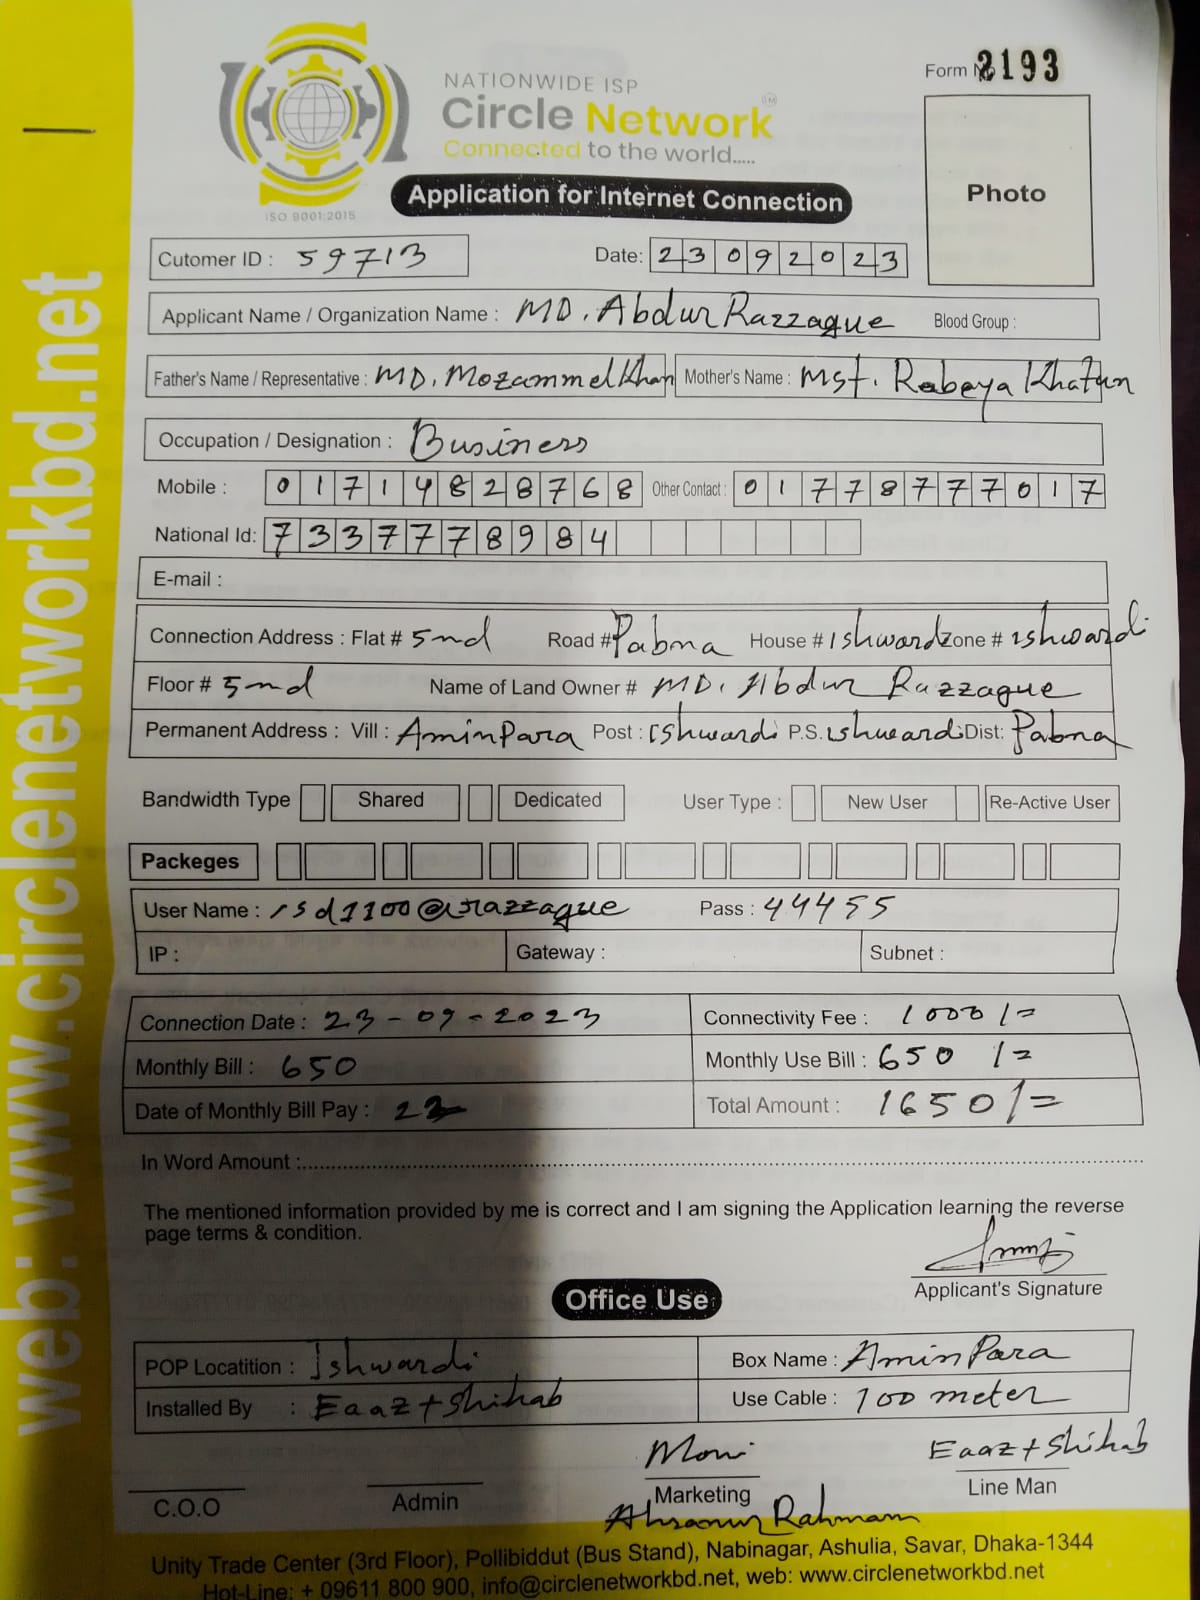 Form № 2193
NATIONWIDE ISP
Circle Network TM
Connected to the world.....
ISO 9001:2015
Application for Internet Connection
Photo
Cutomer ID : 59713 Date: 23092023
Applicant Name / Organization Name : MD. Abdur Razzaque Blood Group :
Father's Name / Representative : MD. Mozammel Khan Mother's Name : Mst. Rabeya Khatun
Occupation / Designation : Business
Mobile : 01714828768 Other Contact : 01778777017
National Id: 7337778984
E-mail :
Connection Address : Flat # 5nd Road # Pabna House # Ishwardi Zone # ishwardi
Floor # 5nd Name of Land Owner # MD. Abdur Razzaque
Permanent Address : Vill : AminPara Post : Ishwardi P.S. ishwardi Dist: Pabna
Bandwidth Type Shared Dedicated User Type : New User Re-Active User
Packeges
User Name : isd1100@razzaque Pass : 44455
IP : Gateway : Subnet :
Connection Date : 23-09-2023 Connectivity Fee : 1000/=
Monthly Bill : 650 Monthly Use Bill : 650 /=
Date of Monthly Bill Pay : 23 Total Amount : 1650/=
In Word Amount :
The mentioned information provided by me is correct and I am signing the Application learning the reverse
page terms & condition.
Applicant's Signature
Office Use
POP Locatition : Ishwardi Box Name : AminPara
Installed By : Eaaz+Shihab Use Cable : 100 meter
Moni Eaaz+Shihab
C.O.O Admin Marketing Line Man
Ahsanur Rahmam
Unity Trade Center (3rd Floor), Pollibiddut (Bus Stand), Nabinagar, Ashulia, Savar, Dhaka-1344
Hot-Line: + 09611 800 900, info@circlenetworkbd.net, web: www.circlenetworkbd.net
web: www.circlenetworkbd.net